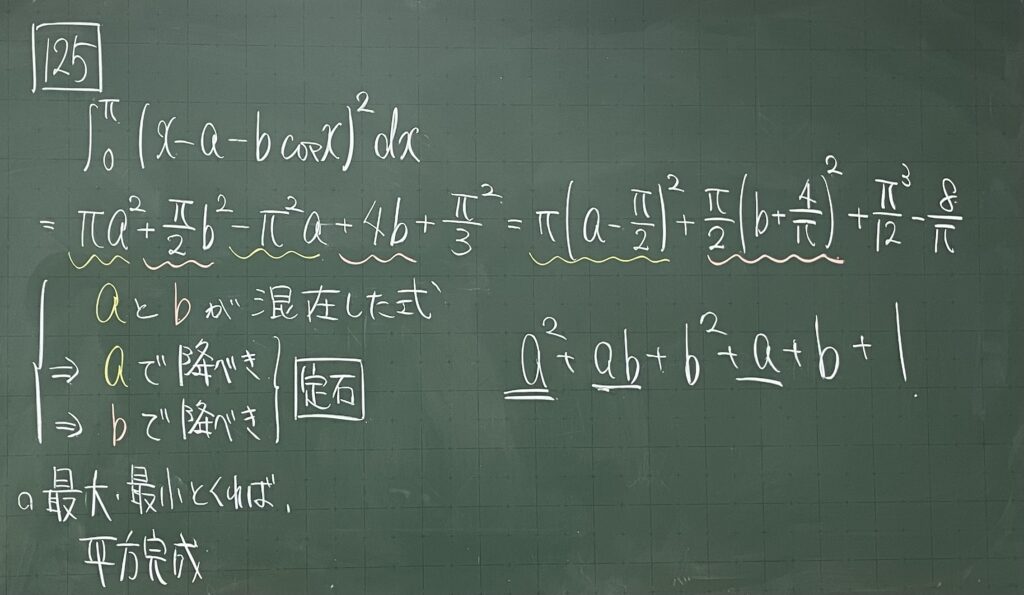 125
∫₀^π (x-a-b cos x)² dx
= πa² + π/2 b² - π²a + 4b + π²/3 = π(a - π/2)² + π/2 (b + 4/π)² + π³/12 - 8/π
aとbが混在した式
⇒ aで降べき
⇒ bで降べき
定石
a² + ab + b² + a + b + 1
□ 最大・最小とくれば、
平方完成